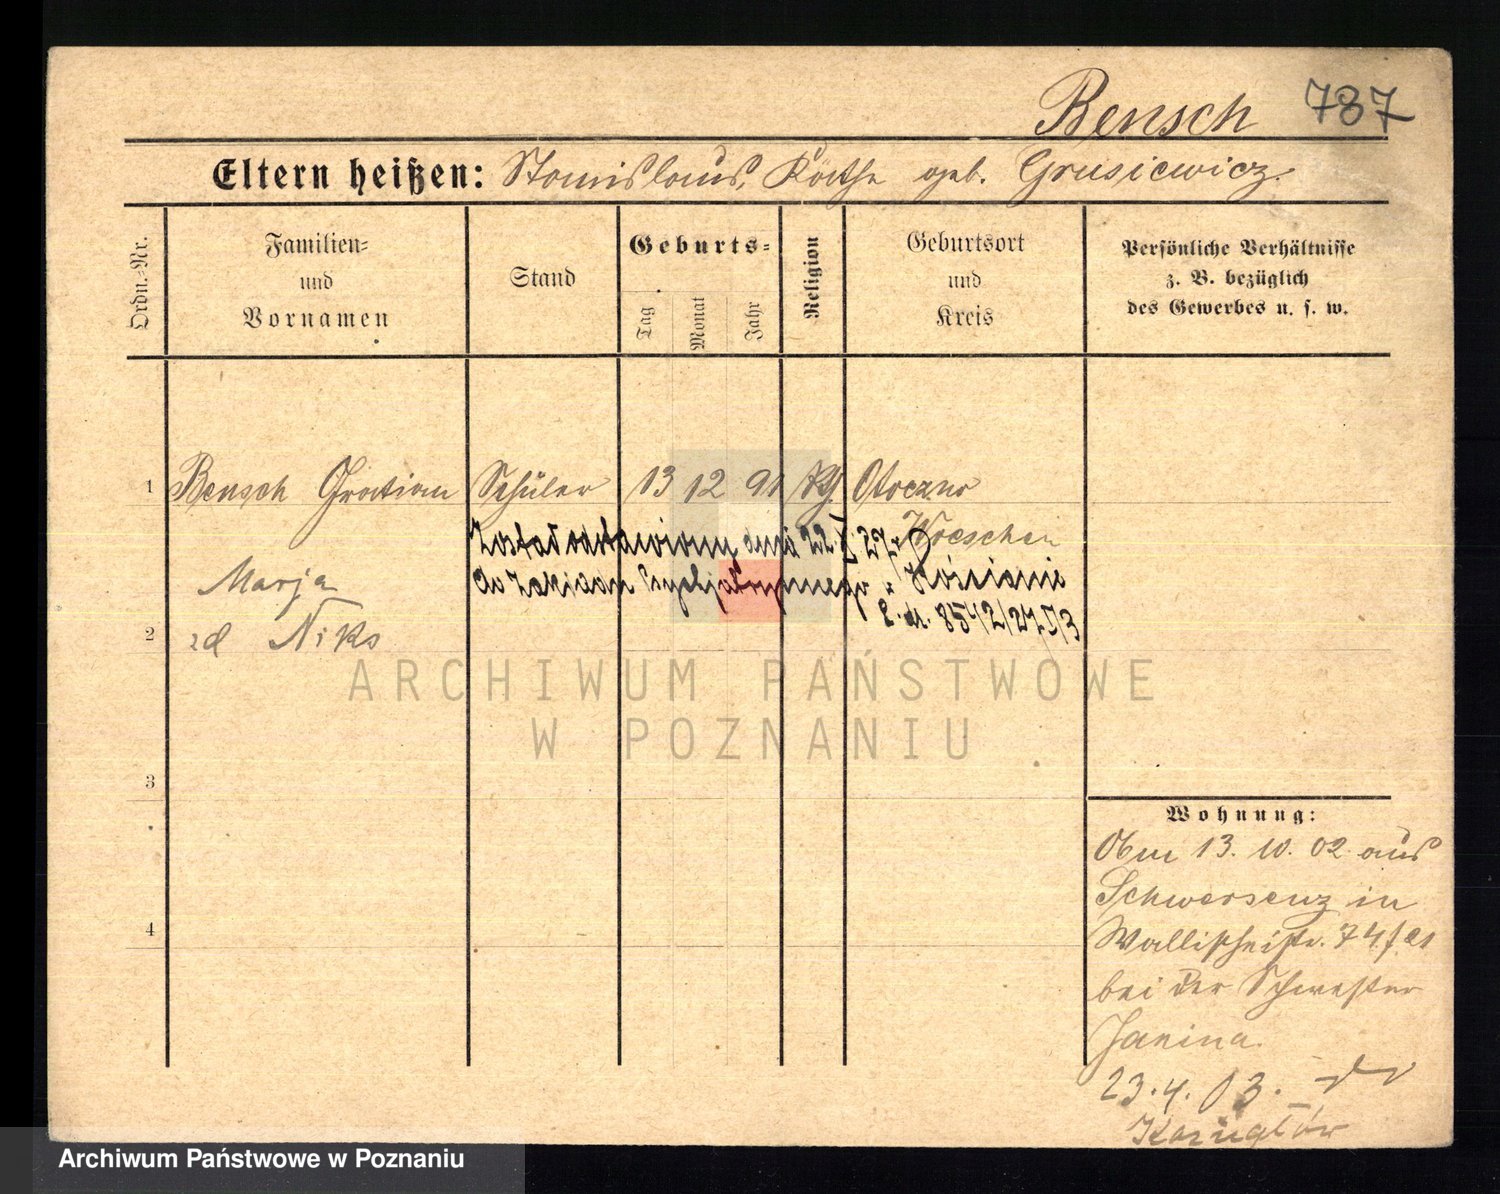 Bensch 787
Eltern heißen: Stanislaus, Käthe geb. Grusiewicz.
Ordn.-Nr.
Familien-
und
Vornamen
Stand
Geburts-
Tag
Monat
Jahr
Religion
Geburtsort
und
Kreis
Persönliche Verhältnisse
z. B. bezüglich
des Gewerbes u. s. w.
1 Bensch Gratian Schüler 13 12 91 Otoczno
Wreschen
Został odstawiony dnia 22
do Zakładu Psychjatrycznego w Kościanie
Marja
2 id Niks
3
4
Wohnung:
Obm 13. 10. 02 aus
Schwersenz in
Wallischeistr. 74
bei der Schwester
Janina.
23. 4. 03.
ARCHIWUM PAŃSTWOWE
W POZNANIU
Archiwum Państwowe w Poznaniu